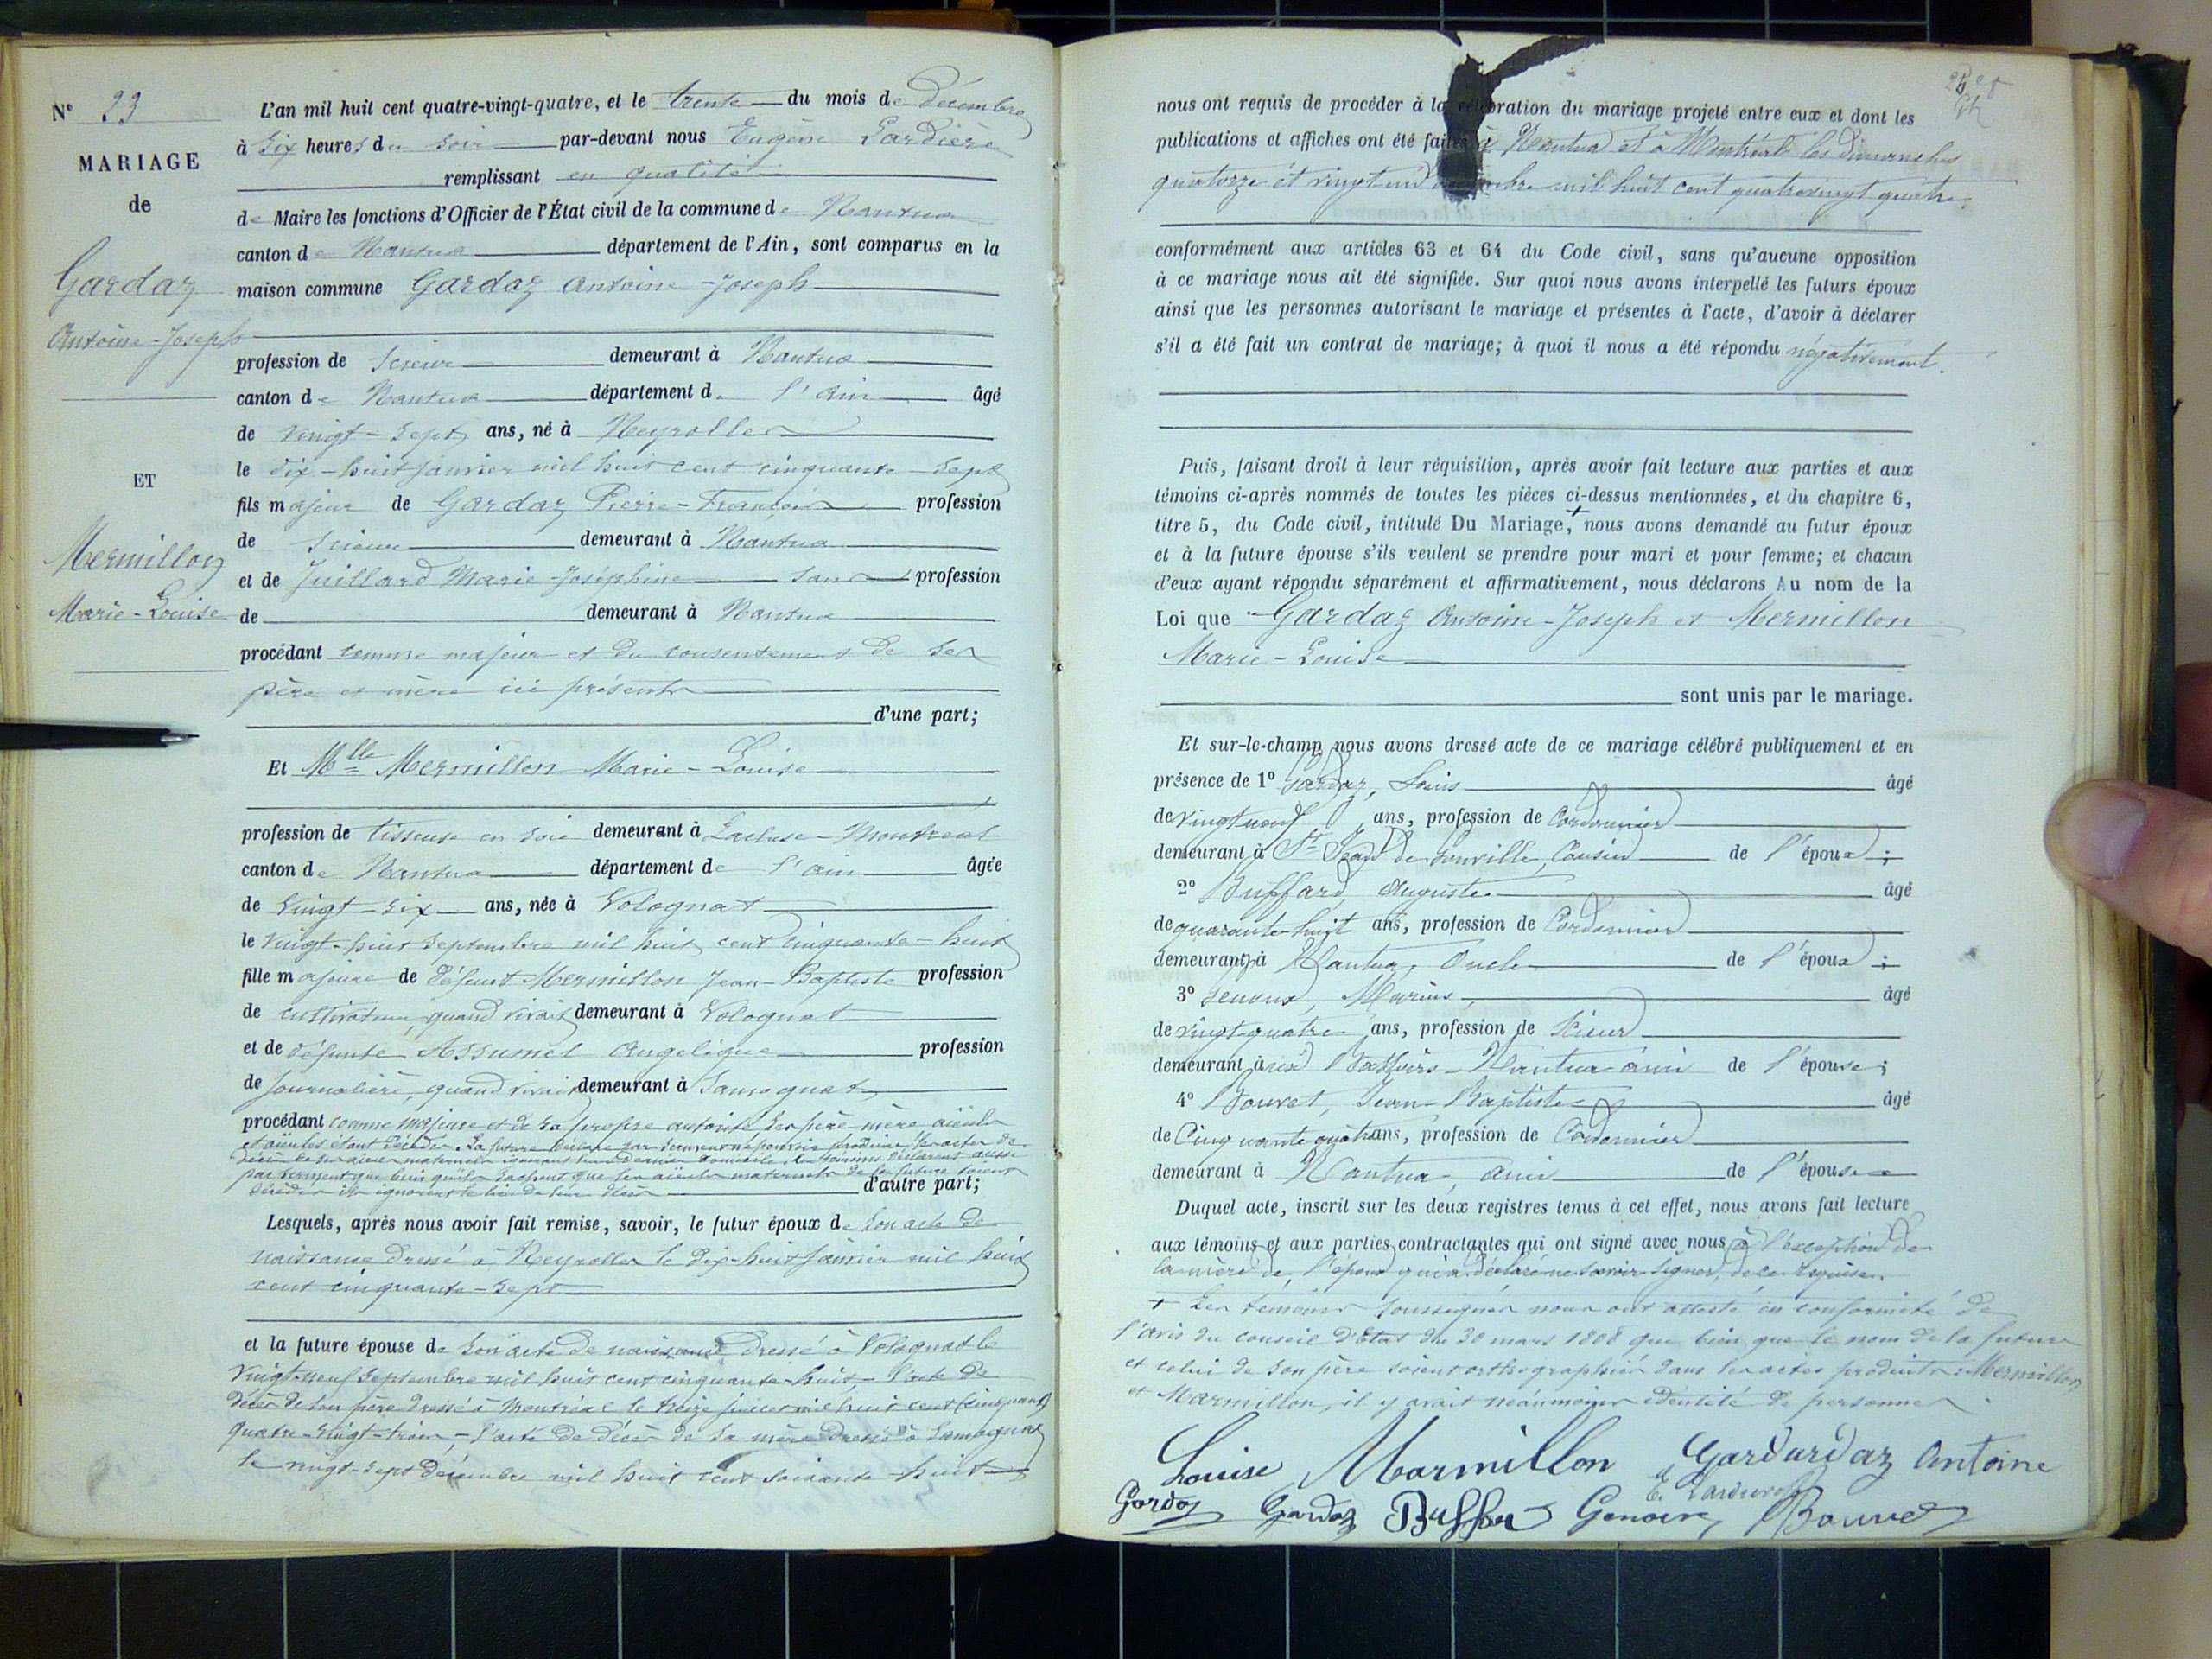 N° 23
MARIAGE
de
Gardaz
Antoine-Joseph
ET
Mermillon
Marie-Louise
L'an mil huit cent quatre-vingt-quatre, et le trente du mois de Décembre
à six heures du soir par-devant nous Eugène Lardière
remplissant en qualité
de Maire les fonctions d'Officier de l'État civil de la commune de Nantua
canton de Nantua département de l'Ain, sont comparus en la
maison commune Gardaz Antoine-Joseph
profession de Scieur demeurant à Nantua
canton de Nantua département de l'Ain âgé
de vingt-sept ans, né à Neyrolles
le dix-huit janvier mil huit cent cinquante-sept
fils majeur de Gardaz Pierre-François profession
de Scieur demeurant à Nantua
et de Juillard Marie-Joséphine sans profession
de demeurant à Nantua
procédant comme majeur et du consentement de ses
père et mère ici présents
d'une part;
Et Mlle Mermillon Marie-Louise
profession de tisseuse en soie demeurant à Lacluse-Montréal
canton de Nantua département de l'Ain âgée
de vingt-six ans, née à Volognat
le vingt-huit septembre mil huit cent cinquante-huit
fille majeure de défunt Mermillon Jean-Baptiste profession
de cultivateur, quand vivait demeurant à Volognat
et de défunte Assumel Angélique profession
de journalière, quand vivait demeurant à Samognat
procédant comme majeure et de sa propre autorité ses père mère aïeuls
et aïeules étant décédés. La future déclare par serment ne pouvoir produire les actes de
décès de ses aïeux maternels dernier domicile, les témoins déclarent aussi
par serment que bien qu'ils sachent que les aïeuls maternels de la future soient
décédés ils ignorent le lieu de leur décès d'autre part;
Lesquels, après nous avoir fait remise, savoir, le futur époux de son acte de
naissance dressé à Neyrolles le dix-huit janvier mil huit
cent cinquante-sept
et la future épouse de son acte de naissance dressé à Volognat le
vingt-neuf septembre mil huit cent cinquante-huit, l'acte de
décès de son père dressé à Montréal le treize juillet mil huit cent cinquante
quatre-vingt-trois, l'acte de décès de sa mère dressé à Samognat
le vingt-sept décembre mil huit cent soixante-huit
nous ont requis de procéder à la célébration du mariage projeté entre eux et dont les
publications et affiches ont été faites à Nantua et à Montréal les dimanches
quatorze et vingt un décembre mil huit cent quatrevingt quatre
conformément aux articles 63 et 64 du Code civil, sans qu'aucune opposition
à ce mariage nous ait été signifiée. Sur quoi nous avons interpellé les futurs époux
ainsi que les personnes autorisant le mariage et présentes à l'acte, d'avoir à déclarer
s'il a été fait un contrat de mariage; à quoi il nous a été répondu négativement.
Puis, faisant droit à leur réquisition, après avoir fait lecture aux parties et aux
témoins ci-après nommés de toutes les pièces ci-dessus mentionnées, et du chapitre 6,
titre 5, du Code civil, intitulé Du Mariage,+ nous avons demandé au futur époux
et à la future épouse s'ils veulent se prendre pour mari et pour femme; et chacun
d'eux ayant répondu séparément et affirmativement, nous déclarons Au nom de la
Loi que Gardaz Antoine-Joseph et Mermillon
Marie-Louise
sont unis par le mariage.
Et sur-le-champ nous avons dressé acte de ce mariage célébré publiquement et en
présence de 1° Gardaz, Louis âgé
de vingt neuf ans, profession de Cordonnier
demeurant à St Jean de Gonville, Cousin de l'époux;
2° Buffard, Auguste âgé
de quarante-huit ans, profession de Cordonnier
demeurant à Nantua, Oncle de l'époux;
3° Genoux, Marius, âgé
de vingt quatre ans, profession de Scieur
demeurant Nantua ami de l'épouse;
4° Bouvet, Jean-Baptiste âgé
de Cinquante quatre ans, profession de Cordonnier
demeurant à Nantua, ami de l'épouse
Duquel acte, inscrit sur les deux registres tenus à cet effet, nous avons fait lecture
aux témoins et aux parties contractantes qui ont signé avec nous à l'exception de
la mère de l'époux qui a déclaré ne savoir signer, de ce requise.
+ Les témoins soussignés nous ont attesté en conformité de
l'avis du conseil d'Etat du 30 mars 1808 que bien que le nom de la future
et celui de son père soient orthographiés dans les actes produits: Mermillon
et Marmillon, il y avait néanmoins identité de personnes.
Louise Marmillon Gardardaz Antoine
E. Lardière
Gardaz Gardaz Buffard Genoux Bouvet